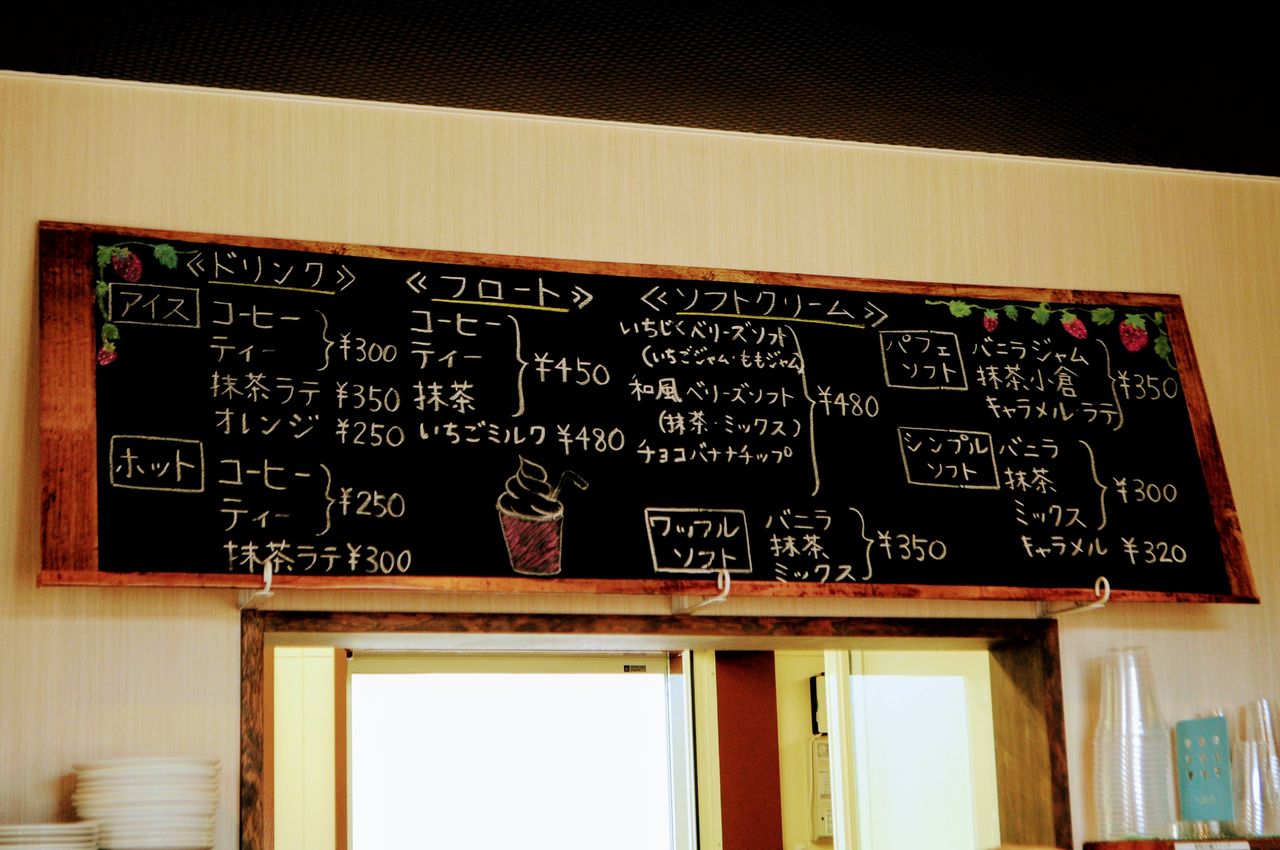 《ドリンク》
アイス
コーヒー
ティー
¥300
抹茶ラテ ¥350
オレンジ ¥250
ホット
コーヒー
ティー
¥250
抹茶ラテ ¥300
《フロート》
コーヒー
ティー
抹茶
¥450
いちごミルク ¥480
《ソフトクリーム》
いちじくベリーズソフト
(いちごジャム・ももジャム)
和風ベリーズソフト
(抹茶・ミックス)
チョコバナナチップ
¥480
ワッフル
ソフト
バニラ
抹茶
ミックス
¥350
パフェ
ソフト
バニラジャム
抹茶小倉
キャラメル・ラテ
¥350
シンプル
ソフト
バニラ
抹茶
ミックス
¥300
キャラメル ¥320